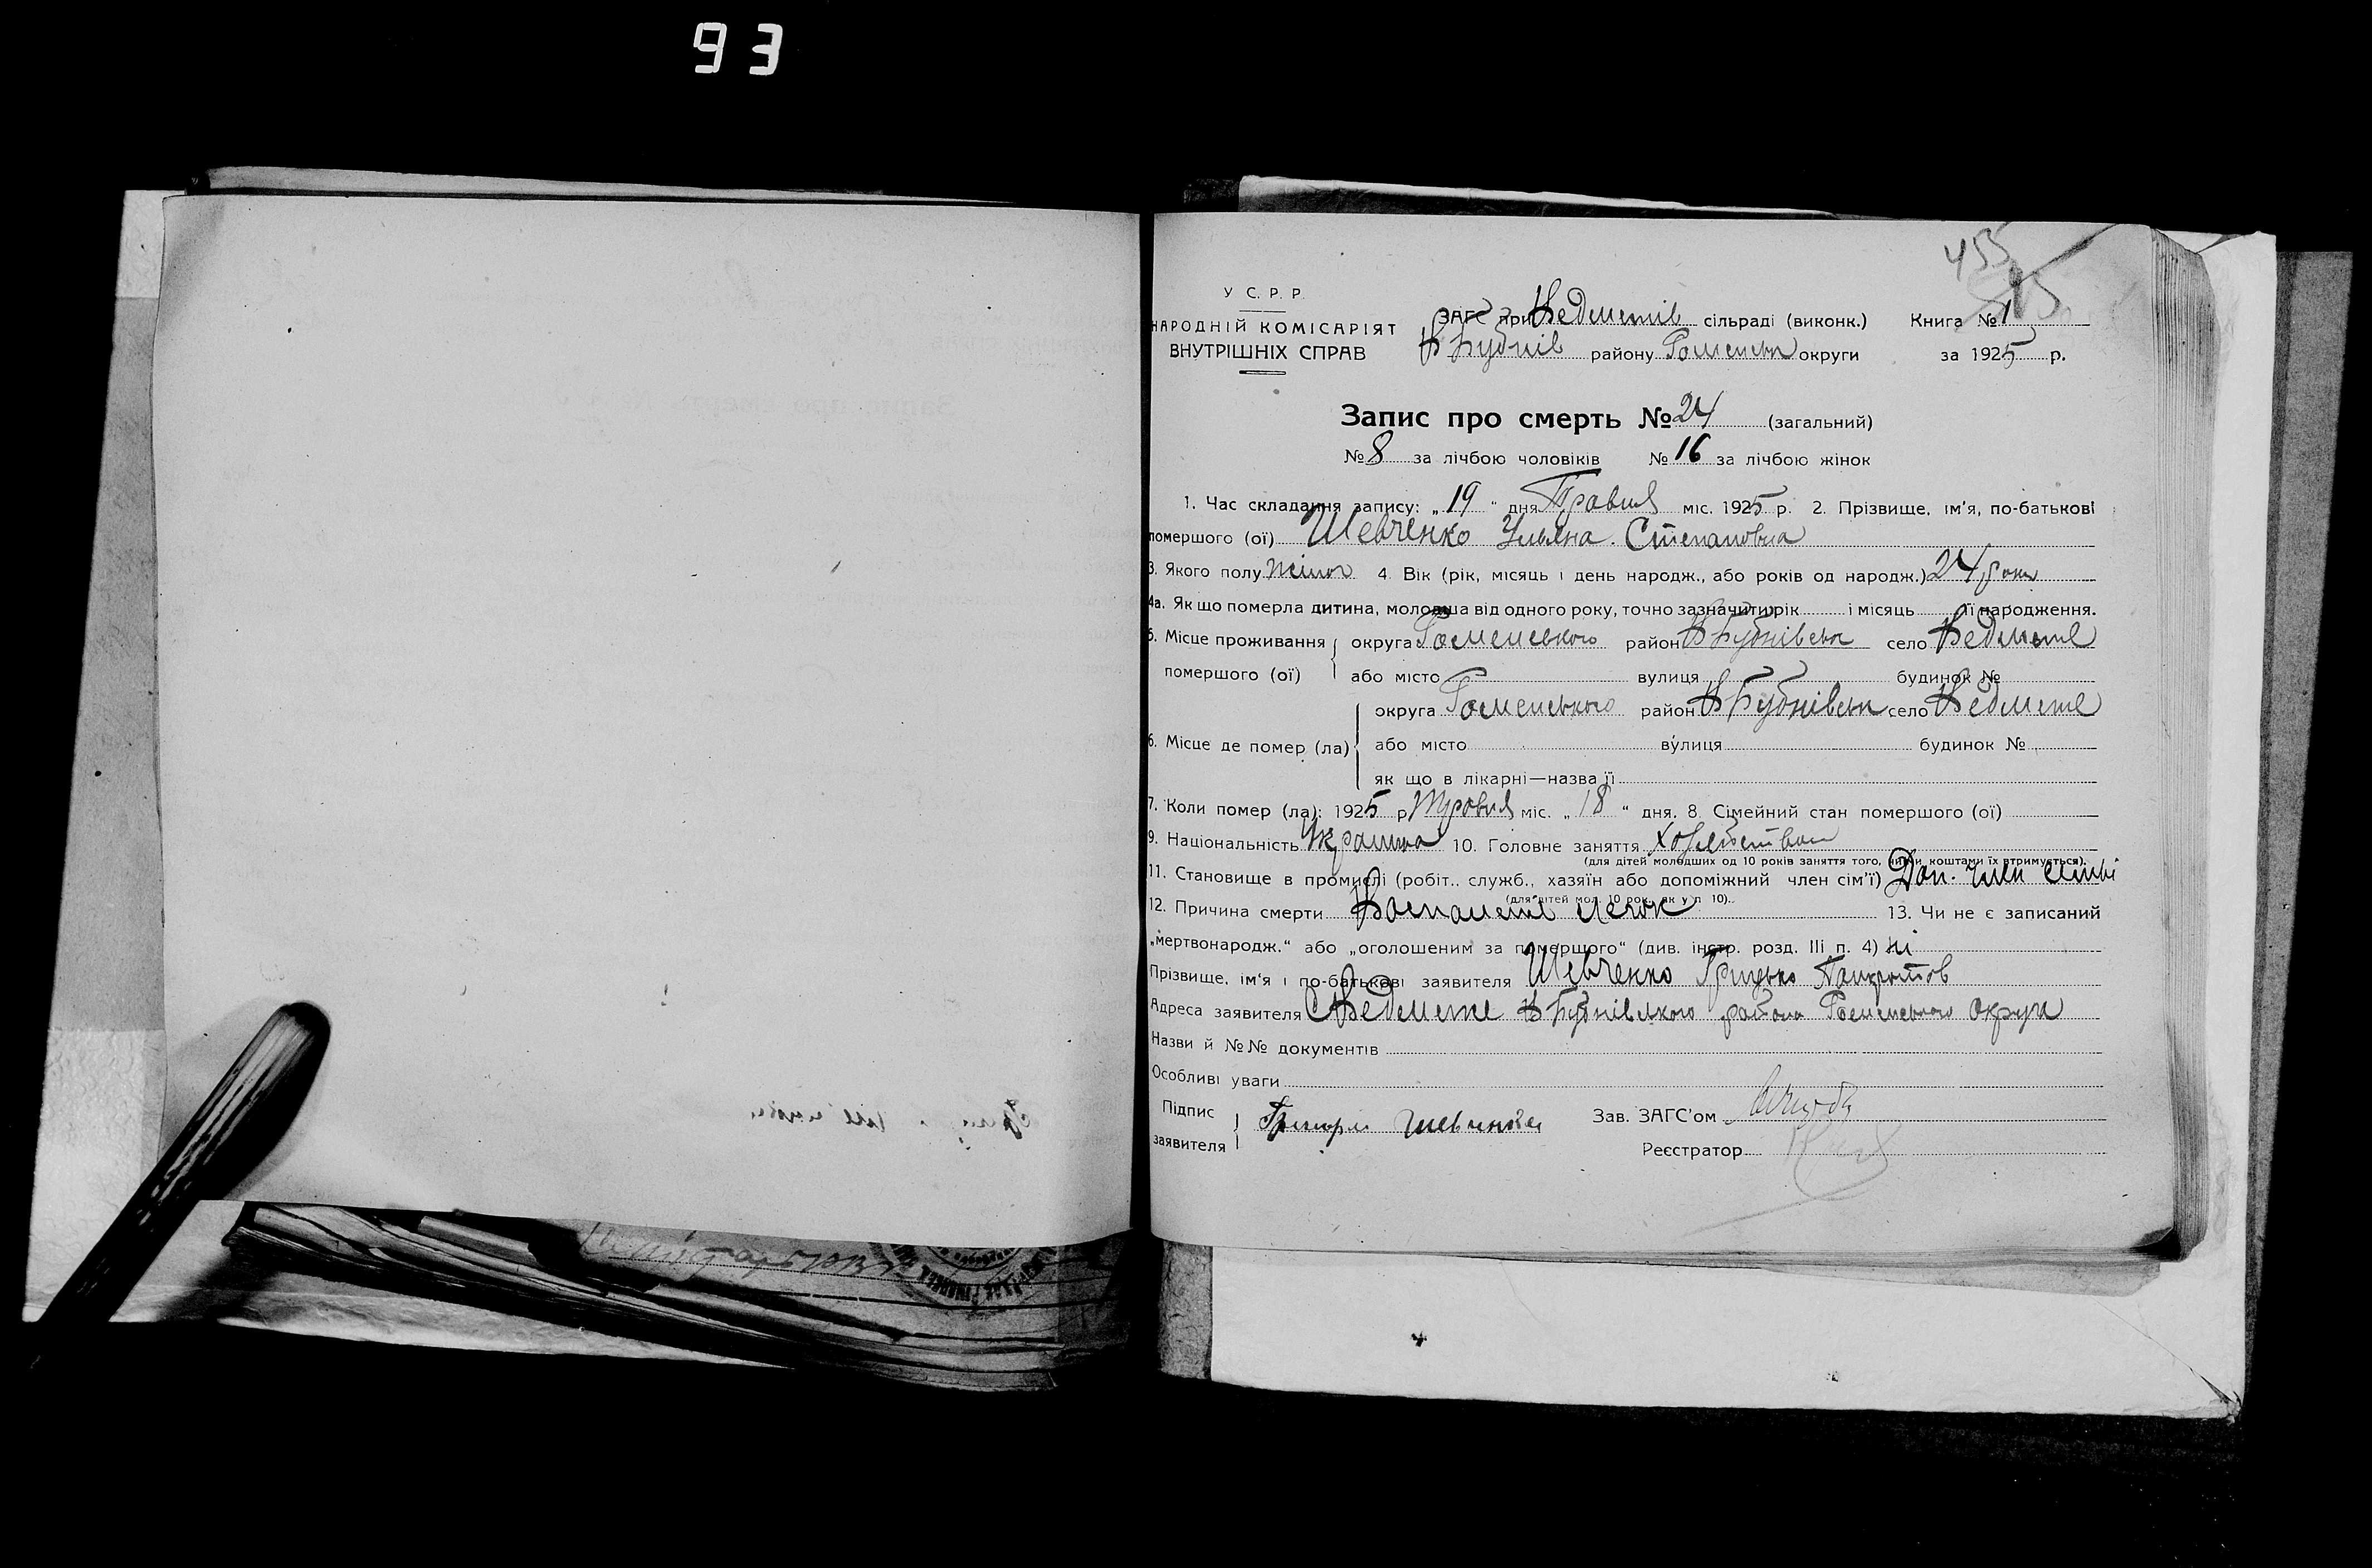 93
455
У С. Р. Р.
НАРОДНІЙ КОМІСАРІЯТ
ВНУТРІШНІХ СПРАВ
ЗАГС при Ведметів сільраді (виконк.) Книга № 1
району Роменськ округи за 1925 р.
Запис про смерть № 24 (загальний)
№ 8 за лічбою чоловіків № 16 за лічбою жінок
1. Час складання запису: „19" дня Травня міс. 1925 р. 2. Прізвище, ім'я, по-батькові
помершого (ої) Шевченко Ульяна Степановна
3. Якого полу жіноч 4. Вік (рік, місяць і день народж., або років од народж.) 24 роки
4а. Як що померла дитина, молодша від одного року, точно зазначити: рік і місяць її народження.
5. Місце проживання округа Роменського район село Ведмеже
помершого (ої) або місто вулиця будинок №
округа Роменського район село Ведмеже
6. Місце де помер (ла) або місто вулиця будинок №
як що в лікарні—назва її
7. Коли помер (ла): 1925 р. Травня міс. „18" дня. 8. Сімейний стан помершого (ої)
9. Національність Україн 10. Головне заняття
(для дітей молодших од 10 років заняття того, чиїми коштами їх втримується).
11. Становище в промислі (робіт., служб., хазяїн або допоміжний член сім'ї) Доп. член сімьі
(для дітей мол. 10 рок. як у п. 10).
12. Причина смерти легок 13. Чи не є записаний
„мертвонародж." або „оголошеним за помершого" (див. інстр. розд. III п. 4) ні
Прізвище, ім'я і по-батькові заявителя Шевченко Грицько Панкратов
Адреса заявителя С Ведмеже района Роменського округа
Назви й №№ документів
Особливі уваги
Підпис
заявителя Григорій Шевченко
Зав. ЗАГС'ом
Реєстратор